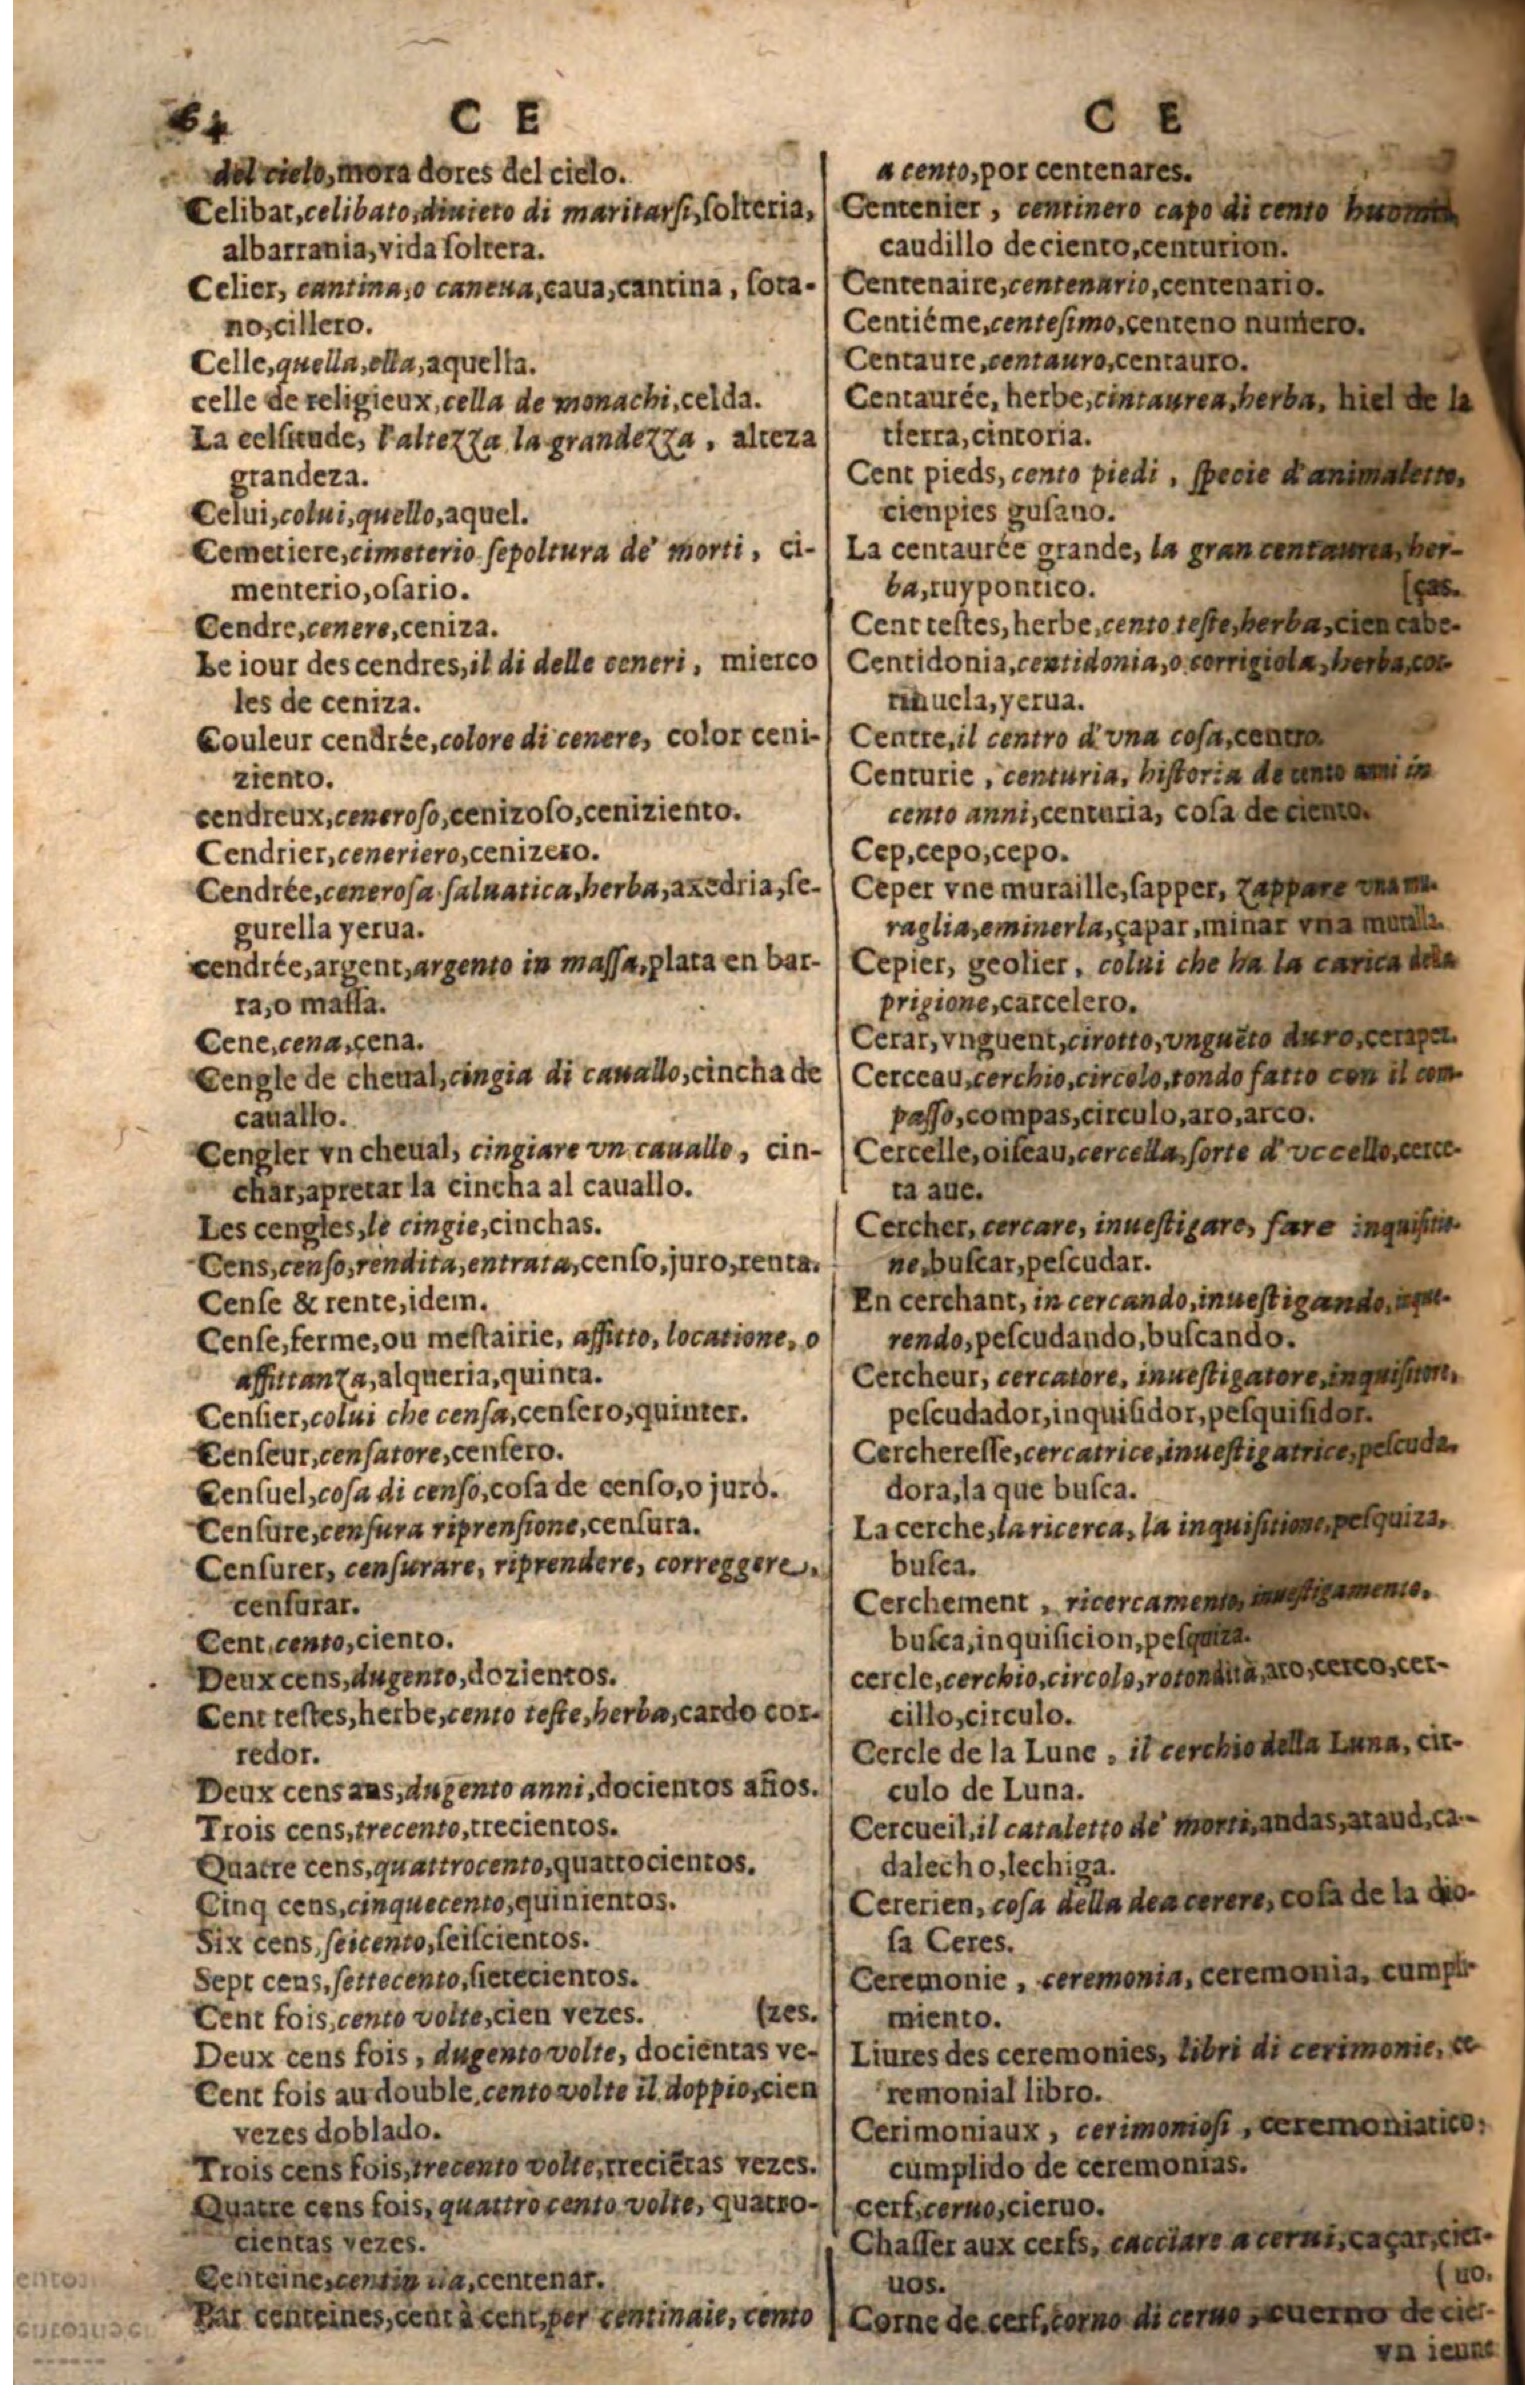 64 C E C E
del cielo, mora dores del cielo.
Celibat, celibato, diuieto di maritarsi, ſolteria,
albarrania, vida ſoltera.
Celier, cantina, o caneua, caua, cantina, ſota-
no, cillero.
Celle, quella, ella, aquella.
celle de religieux, cella de monachi, celda.
La celſitude, l'altezza la grandezza, alteza
grandeza.
Celui, colui, quello, aquel.
Cemetiere, cimeterio ſepoltura de' morti, ci-
menterio, oſario.
Cendre, cenere, ceniza.
Le iour des cendres, il di delle ceneri, mierco
les de ceniza.
Couleur cendrée, colore di cenere, color ceni-
ziento.
cendreux, ceneroſo, cenizoſo, ceniziento.
Cendrier, ceneriero, cenizero.
Cendrée, ceneroſa ſaluatica, herba, axedria, ſe-
gurella yerua.
cendrée, argent, argento in maſſa, plata en bar-
ra, o maſſa.
Cene, cena, çena.
Cengle de cheual, cingia di cauallo, cincha de
cauallo.
Cengler vn cheual, cingiare vn cauallo, cin-
char, apretar la cincha al cauallo.
Les cengles, le cingie, cinchas.
Cens, cenſo, rendita, entrata, cenſo, juro, renta.
Cenſe & rente, idem.
Cenſe, ferme, ou meſtairie, affitto, locatione, o
affittanza, alqueria, quinta.
Cenſier, colui che cenſa, cenſero, quinter.
Cenſeur, cenſatore, cenſero.
Cenſuel, coſa di cenſo, coſa de cenſo, o juro.
Cenſure, cenſura riprenſione, cenſura.
Cenſurer, cenſurare, riprendere, correggere,
cenſurar.
Cent, cento, ciento.
Deux cens, dugento, dozientos.
Cent teſtes, herbe, cento teſte, herba, cardo cor-
redor.
Deux cens ans, dugento anni, docientos años.
Trois cens, trecento, trecientos.
Quatre cens, quattrocento, quatrocientos.
Cinq cens, cinquecento, quinientos.
Six cens, ſeicento, ſeiſcientos.
Sept cens, ſettecento, ſietecientos.
Cent fois, cento volte, cien vezes. (zes.
Deux cens fois, dugento volte, docientas ve-
Cent fois au double, cento volte il doppio, cien
vezes doblado.
Trois cens fois, trecento volte, treciẽtas vezes.
Quatre cens fois, quattro cento volte, quatro-
cientas vezes.
Centeine, centenar.
Par centeines, cent à cent, per centinaie, cento
a cento, por centenares.
Centenier, centinero capo di cento
caudillo de ciento, centurion.
Centenaire, centenario, centenario.
Centiéme, centeſimo, centeno numero.
Centaure, centauro, centauro.
Centaurée, herbe, cintaurea, herba, hiel de la
tierra, cintoria.
Cent pieds, cento piedi, ſpecie d'animaletto,
cienpies guſano.
La centaurée grande, la gran centaurea, her-
ba, ruypontico. (ças.
Cent teſtes, herbe, cento teſte, herba, cien cabe-
Centidonia, centidonia, o corrigiola, herba, cor-
rihuela, yerua.
Centre, il centro d'vna coſa, centro.
Centurie, centuria, hiſtoria de cento anni in
cento anni, centuria, coſa de ciento.
Cep, cepo, cepo.
Ceper vne muraille, ſapper, zappare vna mu-
raglia, eminerla, çapar, minar vna muralla.
Cepier, geolier, colui che ha la carica della
prigione, carcelero.
Cerat, vnguent, cirotto, vnguẽto duro, cerapez.
Cerceau, cerchio, circolo, tondo fatto con il com-
paſſo, compas, circulo, aro, arco.
Cercelle, oiſeau, cercella, ſorte d'vccello, cerce-
ta aue.
Cercher, cercare, inueſtigare, fare inquiſitio-
ne, buſcar, peſcudar.
En cerchant, in cercando, inueſtigando, inqui-
rendo, peſcudando, buſcando.
Cercheur, cercatore, inueſtigatore, inquiſitore,
peſcudador, inquiſidor, peſquiſidor.
Cerchereſſe, cercatrice, inueſtigatrice, peſcuda-
dora, la que buſca.
La cerche, la ricerca, la inquiſitione, peſquiza,
buſca.
Cerchement, ricercamento, inueſtigamento,
buſca, inquiſicion, peſquiza.
cercle, cerchio, circolo, rotondità, aro, cerco, cer-
cillo, circulo.
Cercle de la Lune, il cerchio della Luna, cir-
culo de Luna.
Cercueil, il cataletto de' morti, andas, ataud, ca-
dalecho, lechiga.
Cererien, coſa della dea cerere, coſa de la dio-
ſa Ceres.
Ceremonie, ceremonia, ceremonia, cumpli-
miento.
Liures des ceremonies, libri di cerimonie, ce-
remonial libro.
Cerimoniaux, cerimonioſi, ceremoniatico,
cumplido de ceremonias.
cerf, ceruo, cieruo.
Chaſſer aux cerfs, cacciare a cerui, caçar, cier-
uos. (uo.
Corne de cerf, corno di ceruo, cuerno de cier-
vn ieune